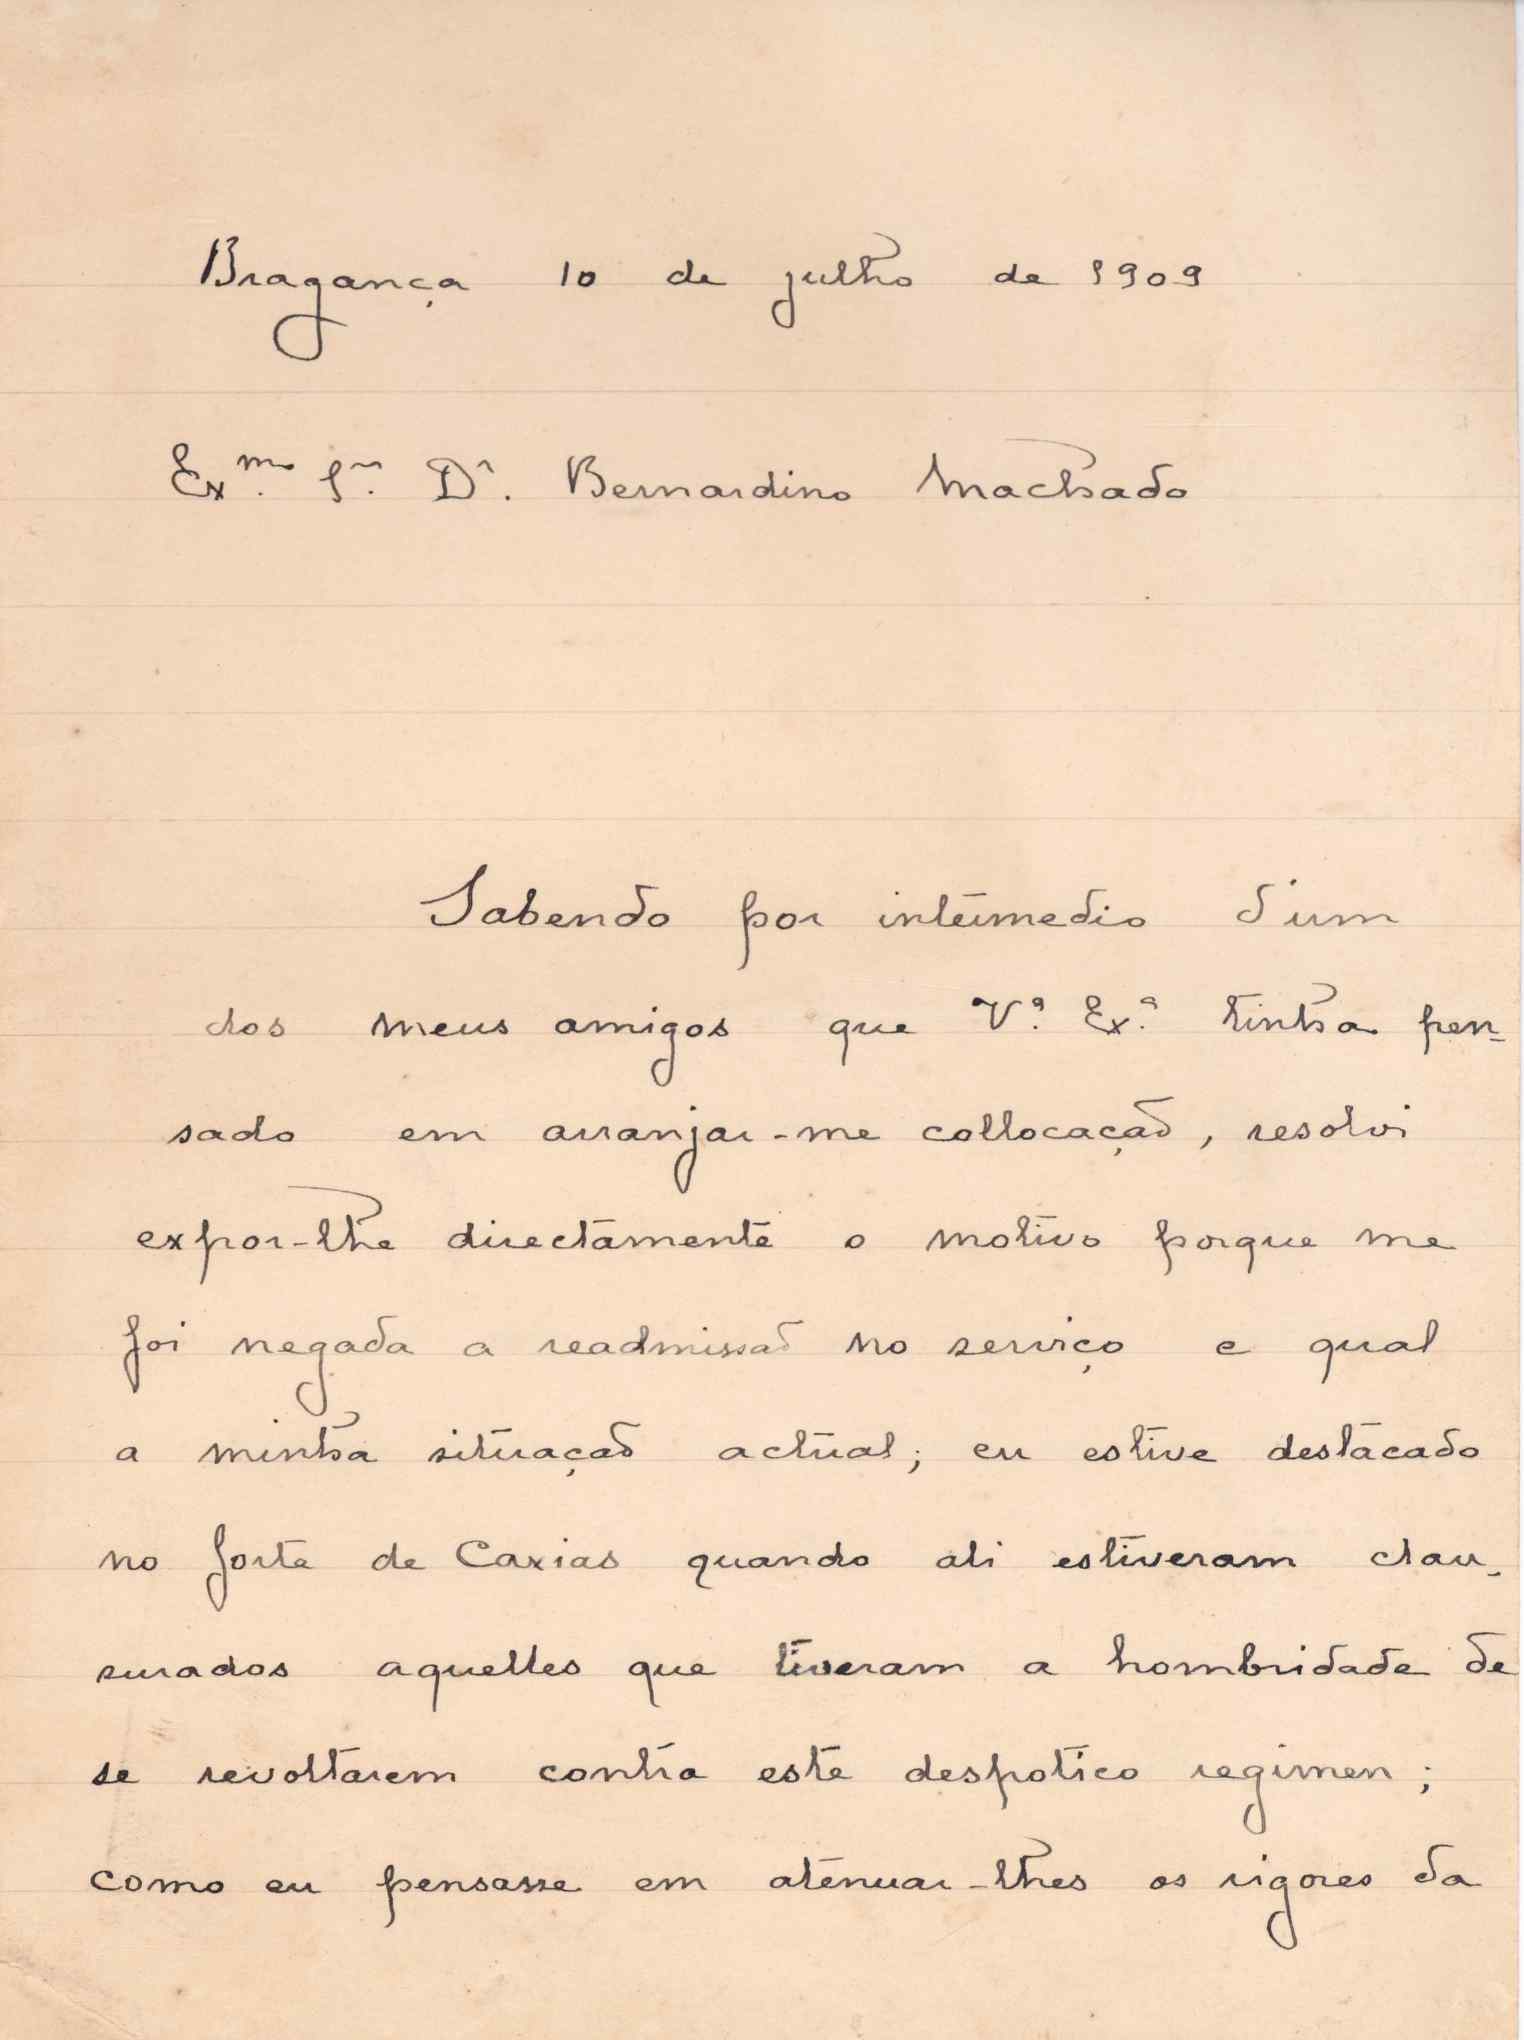 Bragança 10 de julho de 1909
Ex.mo Sr. Dr. Bernardino Machado
Sabendo por intermedio d'um
dos meus amigos que V.ª Ex.ª tinha pen-
sado em arranjar-me collocação, resolvi
expor-lhe directamente o motivo porque me
foi negada a readmissão no serviço e qual
a minha situação actual; eu estive destacado
no forte de Caxias quando ali estiveram clau-
surados aquelles que tiveram a hombridade de
se revoltarem contra este despotico regimen;
como eu pensasse em atenuar-lhes os rigores da